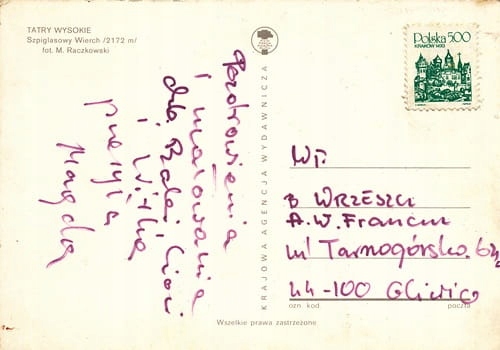 TATRY WYSOKIE
Szpiglasowy Wierch /2172 m/
fot. M. Raczkowski
Pozdrowienia
i
dla
i
przesyła
Magda
KRAJOWA AGENCJA WYDAWNICZA
Polska 5,00
KRAKÓW 1493
WP.
B WRZESZCZ
A.W. Francuz
ul Tarnogórska
44-100 Gliwice
ozn kod
poczta
Wszelkie prawa zastrzeżone